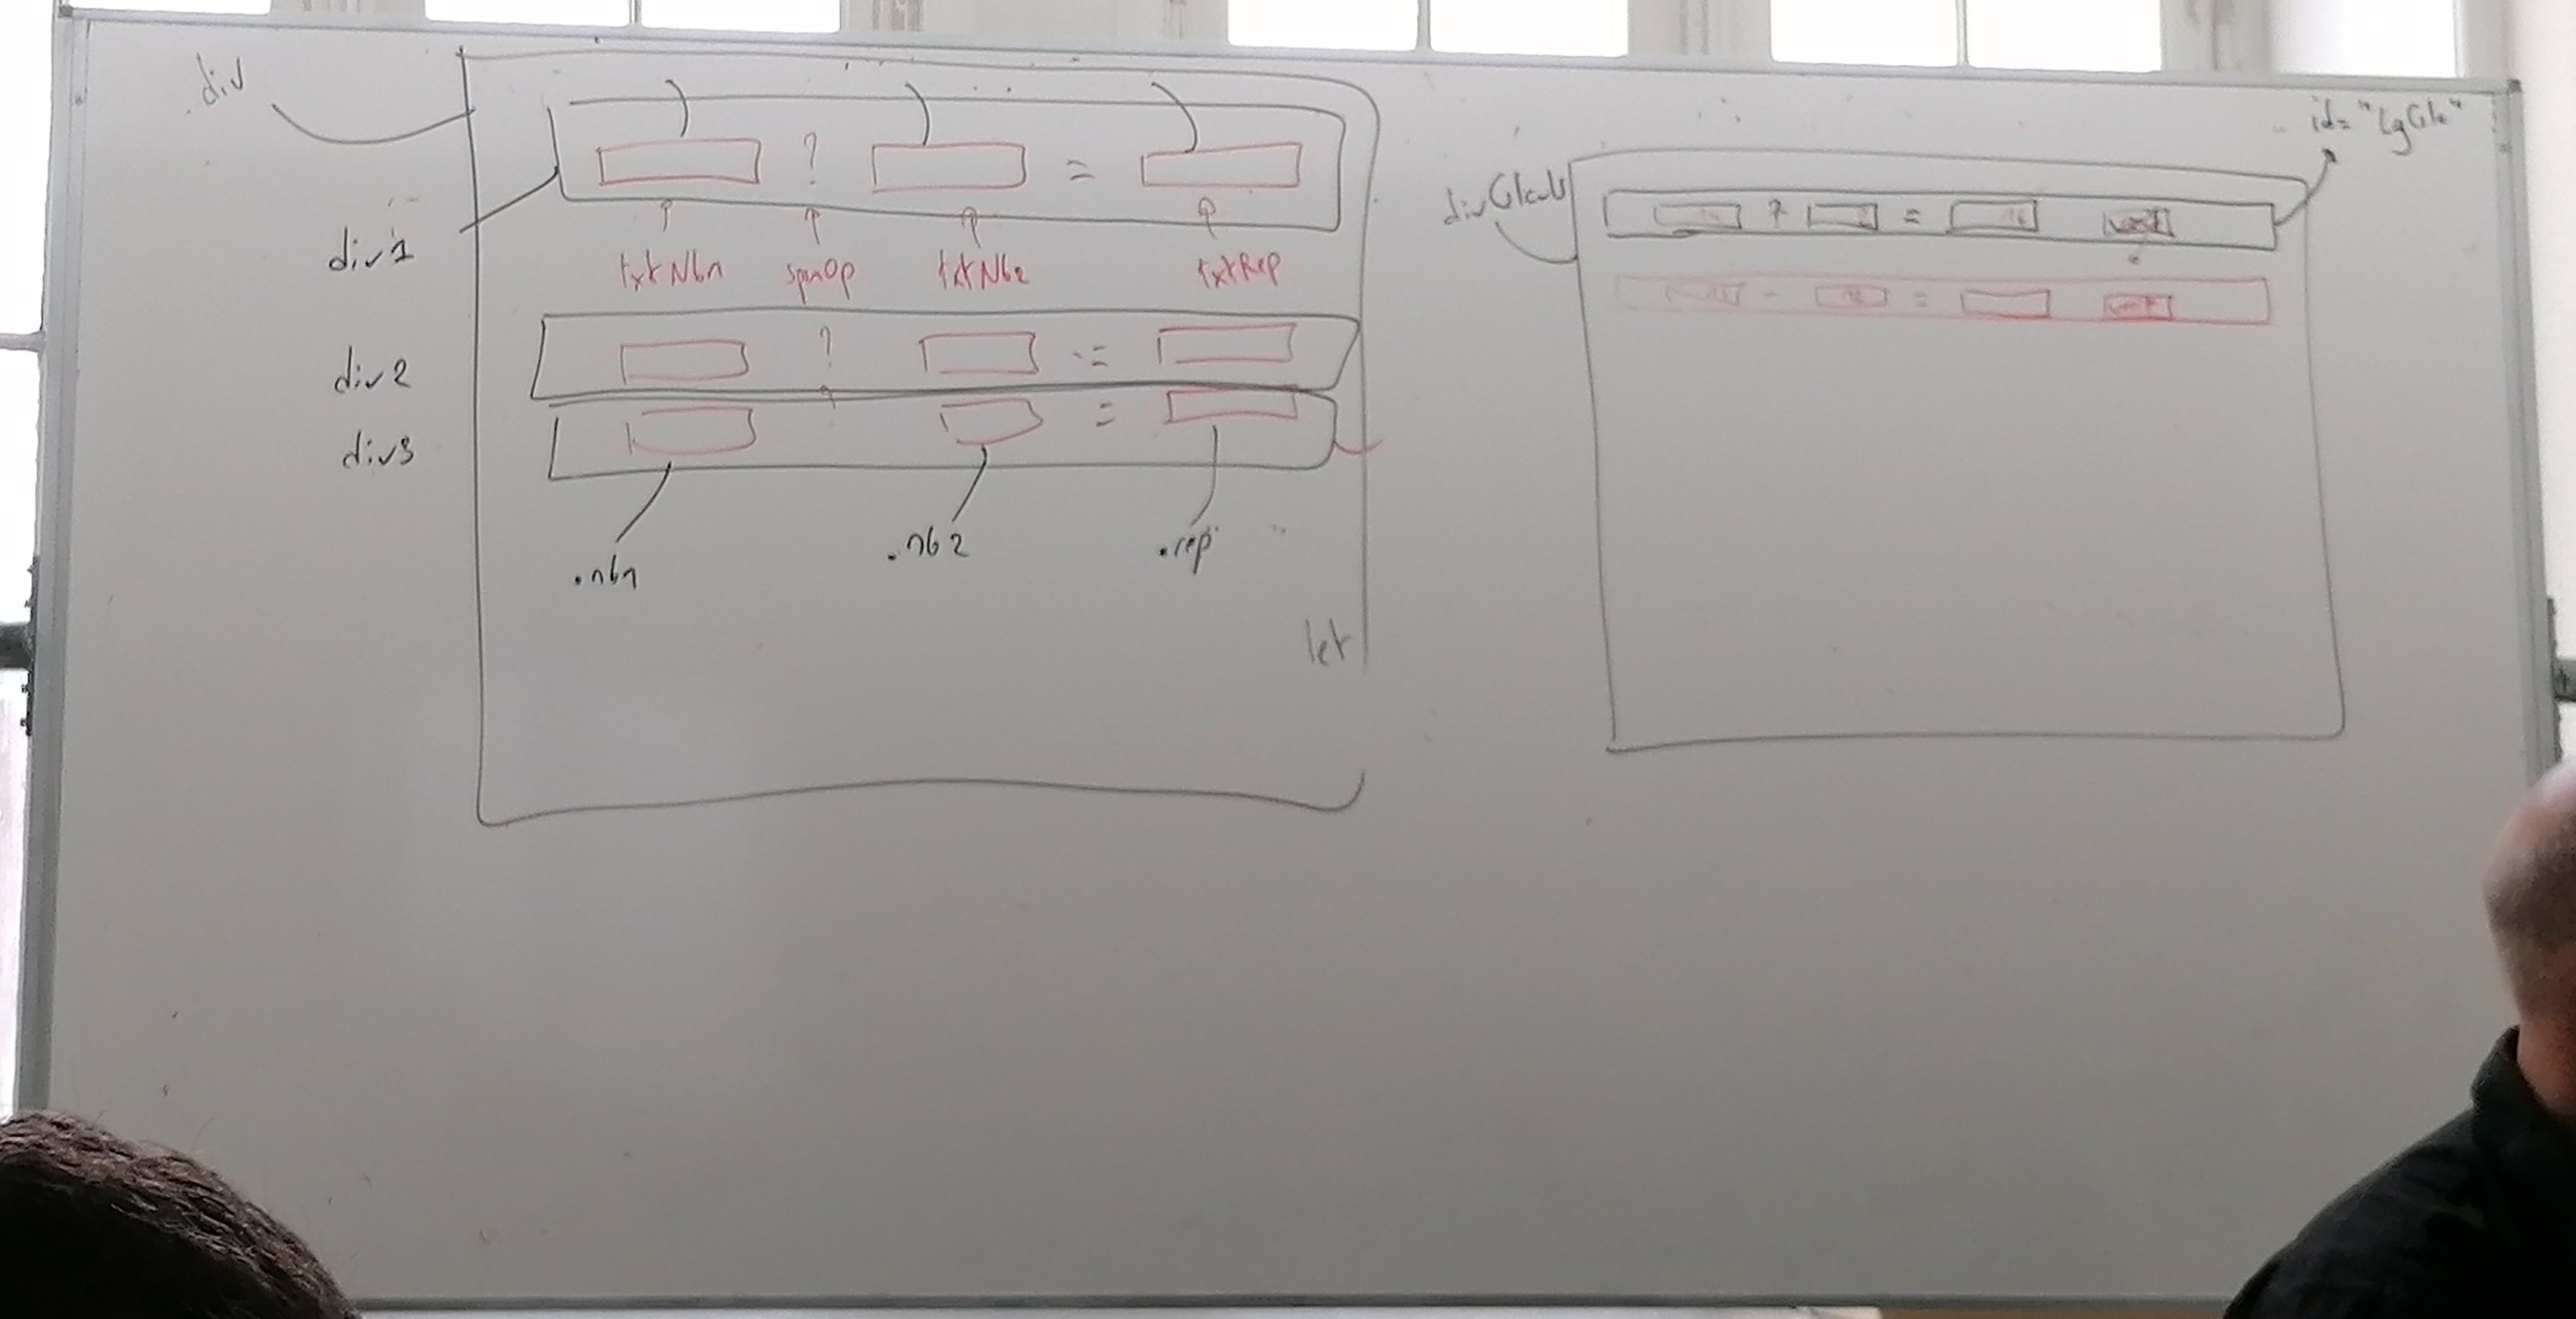 div
? = 
div1
txtNb1 spanOp txtNb2 txtRep
div2
? =
div3
=
.nb1 .nb2 .rep
let
id="lgClc"
divCalcul
? =
- =